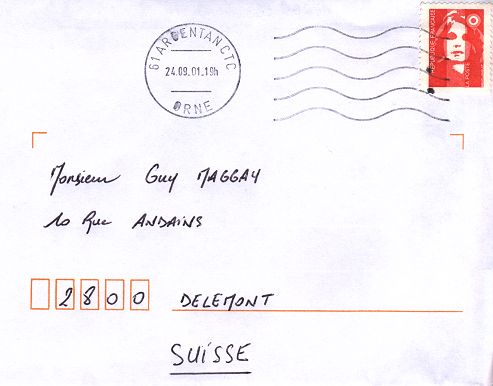 61 ARGENTAN CTC
24.09.01.18h
ORNE
REPUBLIQUE FRANÇAISE
LA POSTE
Monsieur Guy MAGGAY
10 Rue ANDAINS
2800 DELEMONT
SUISSE